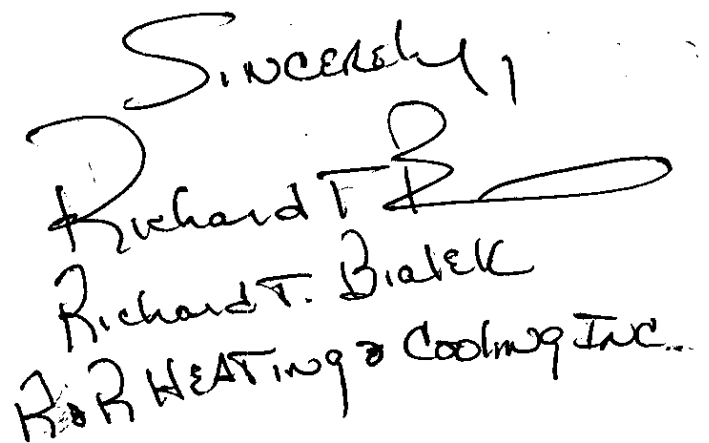 Sincerely,
Richard T B
Richard T. Bialek
R & R HEATing & Cooling INC.